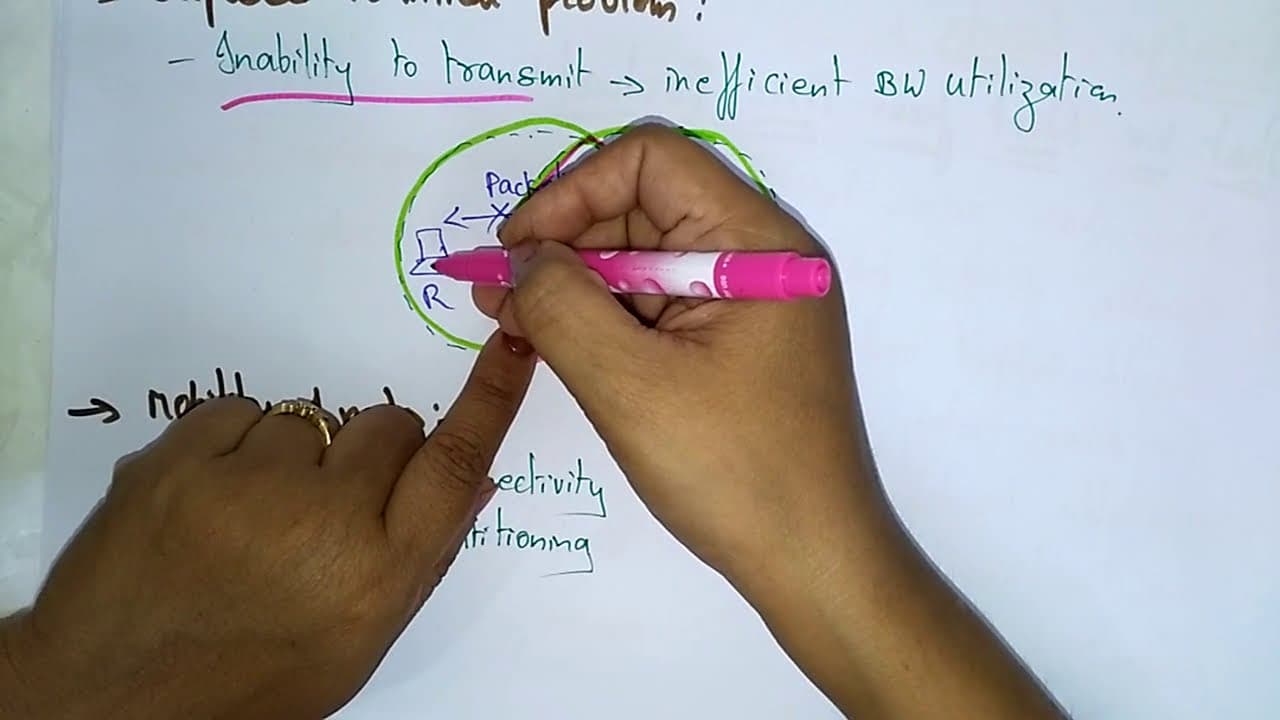 problem:
- Inability to transmit → inefficient BW utilization.
Pack
R
→
ectivity
titioning